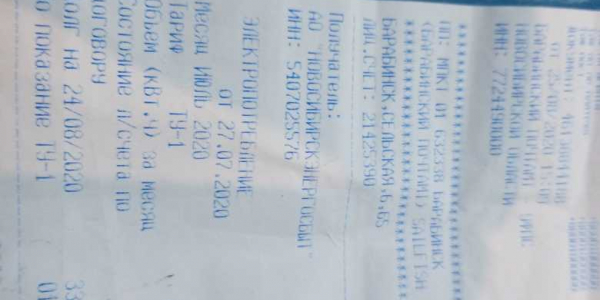 25/08/2020 15:07
БАРАБИНСКИЙ ПОЧТАМТ - УФПС
НОВОСИБИРСКОЙ ОБЛАСТИ
ИНН: 7724490000
ОП: МРКТ 01 632338 БАРАБИНСК
(БАРАБИНСКИЙ ПОЧТАМТ) SAILFISH
БАРАБИНСК,СЕЛЬСКАЯ,6,65
ЛИЦ.СЧЕТ: 21425390
Получатель:
АО "НОВОСИБИРСКЭНЕРГОСБЫТ"
ИНН: 5407025576
ЭЛЕКТРОПОТРЕБЛЕНИЕ
от 27.07.2020
Месяц Июль 2020
Тариф ТУ-1
Объем (кВт.ч) за месяц
Состояние л/счета по
договору
олг на 24/08/2020 33
о показание ТУ-1 01